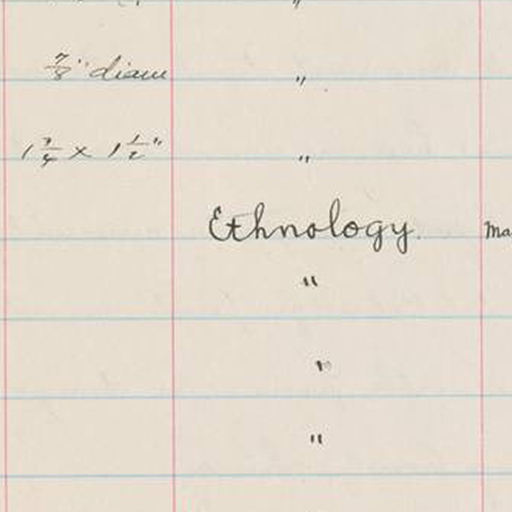 "
7/8" diam "
1 3/4 x 1 1/2" "
Ethnology. Ma
"
"
"